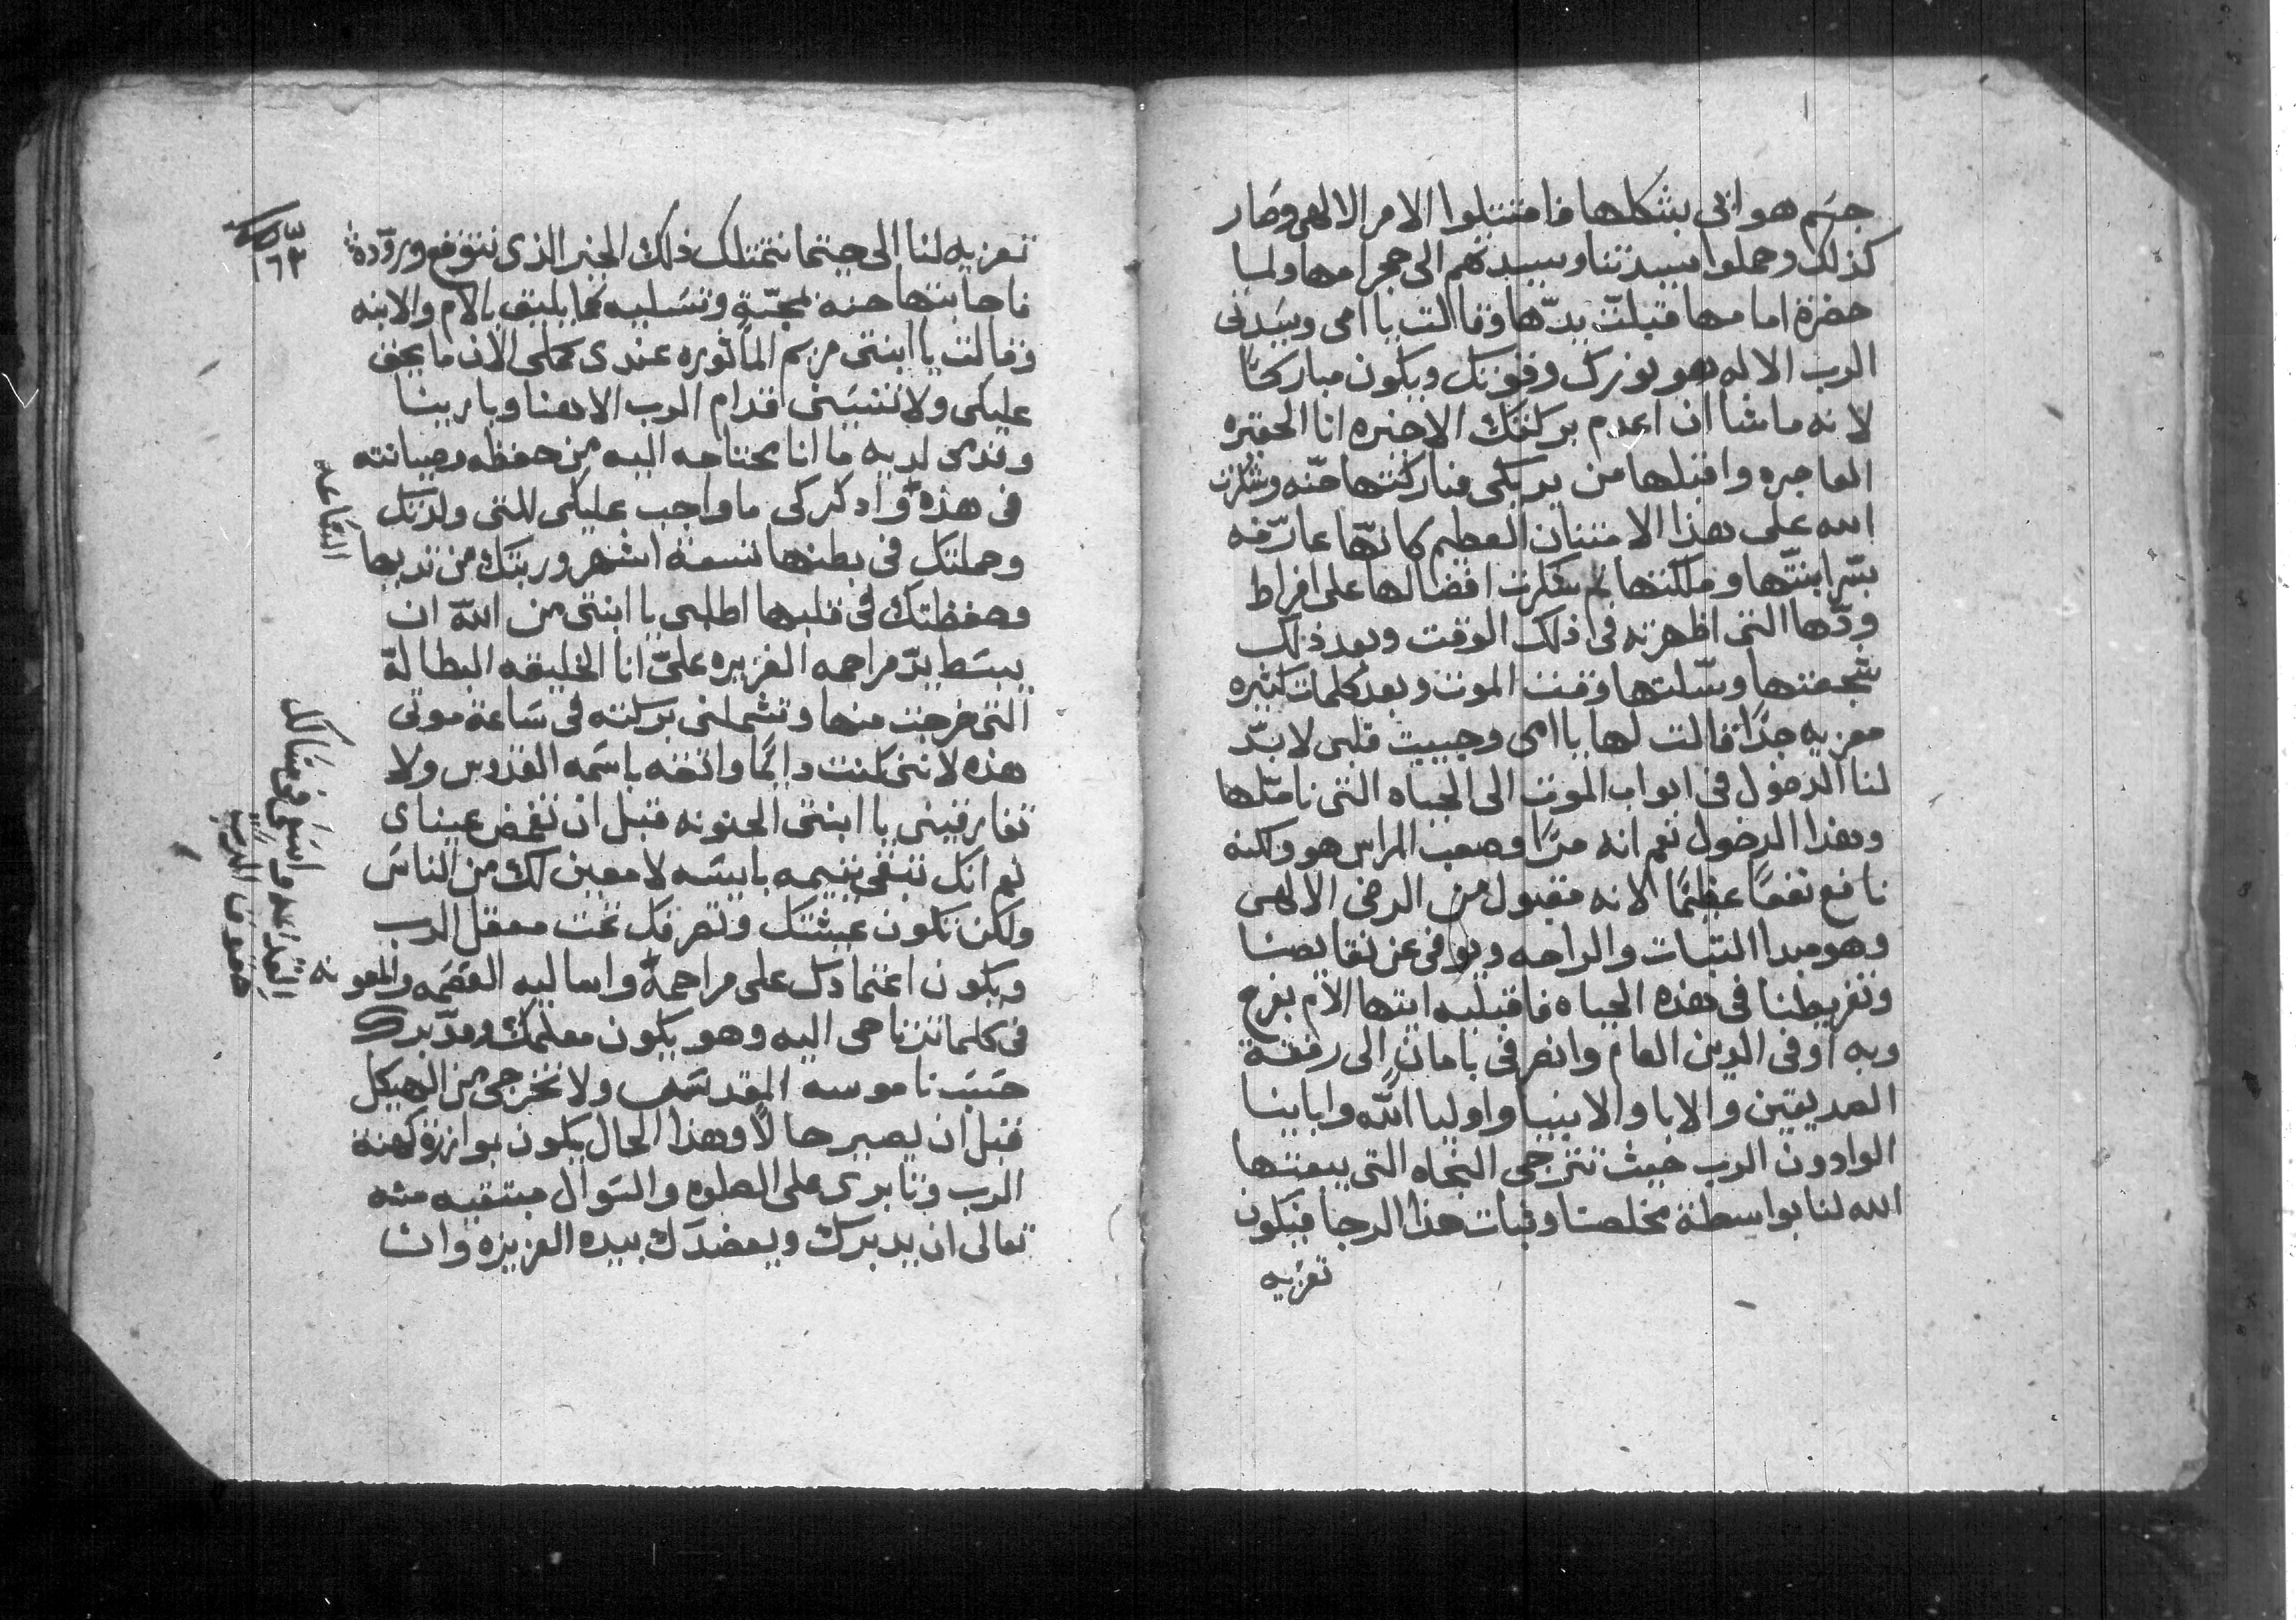 جسم هواىى بشكلها فامتتلوا الامر الالهى وصار
كذلك وحملوا سيدتنا وسيدتهم الى حجر امها ولما
حضرة امامها قبلت يدها وقالت يا امى وسيدتى
الرب الاله هو نورك وقوتك ويكون مباركًا
لانه ماشا ان اعدم بركتك الاخيره انا الحقيره
العاجزه واقبلها من يديكى فباركتها حنه وشكرت
الله على هذا الامتنان العظيم كانها عارفه
بسر ابنتها وملكتها ثم شكرت افضالها على افراط
ودها التى اظهرته فى ذلك الوقت وبعد ذلك
شجعتها وسلتها وقت الموت وبعد كلمات كثيره
معزيه جدًا قالت لها يا امى وحبيبت قلبى لا بد
لنا الدخول فى ابواب الموت الى الحياه التى ناملها
وهذا الدخول نعم انه مرًا وصعب المراس هو ولكنه
نافع نفعًا عظيمًا لانه مقبول من الرضى الالهى
وهو مبدا التبات والراحه ويوفى عن نقايصنا
وتفريطنا فى هذه الحياه فاقبليه ايتها الام بفرح
وبه اوفى الدين العام وانصرفى بامان الى رفقة
الصديقين والابا والانبيا واوليا الله وابابنا
الوادون الرب حيث تترجى النجاه التى يبعتها
الله لنا بواسطة مخلصنا وتبات هذا الرجا فيكون
تعزيه
١٦٣
تعزيه لنا الى حيتما نتمتلك ذلك الخير الذى نتوقع وروده
فاجابتها حنه بمحبّة وتسليه كما يليق بالام والابنه
وقالت يا ابنتى مريم الماتوره عندى كملى الان ما يحق
عليكى ولا تنسينى قدام الرب الاهنا وبارينا
وتدرى لديه ما انا محتاجه اليه من حفظه وصيانته
فى هذه واذكركى ما واجب عليكى للتى ولدتك
الساعه
وحملتك فى بطنها تسعة اشهر وربتك من تديها
وحفظتك فى قلبها اطلبى يا ابنتى من الله ان
يبسط يد مراحمه الغزيره علىّ انا الخليقه البطالة
التى خرجت منها وتشملنى بركته فى ساعة موتى
هذه لاننى كنت دايمًا واتقه باسمه القدوس ولا
تفارقينى يا ابنتى الحنونه قبل ان تغمض عيناى
نعم انك تبقى يتيمه بايسه لا معين لك من الناس
ولكن تكون عيشتك وتصرفك تحت معقل الرب
ويكون اعتمادك على مراحمه واساليه العصمه والمعونه
فى كلما تتناجى اليه وهو يكون معلمك ومدبرك
حسب ناموسه المقدس ولا تخرجى من الهيكل
قبل ان يصير حالًا وهذا الحال يكون بوازرة كهنة
الرب وتابرى على الصلوه والسوال مبتغيه منه
تعالى ان يدبرك ويعضدك بيده العزيزه وان